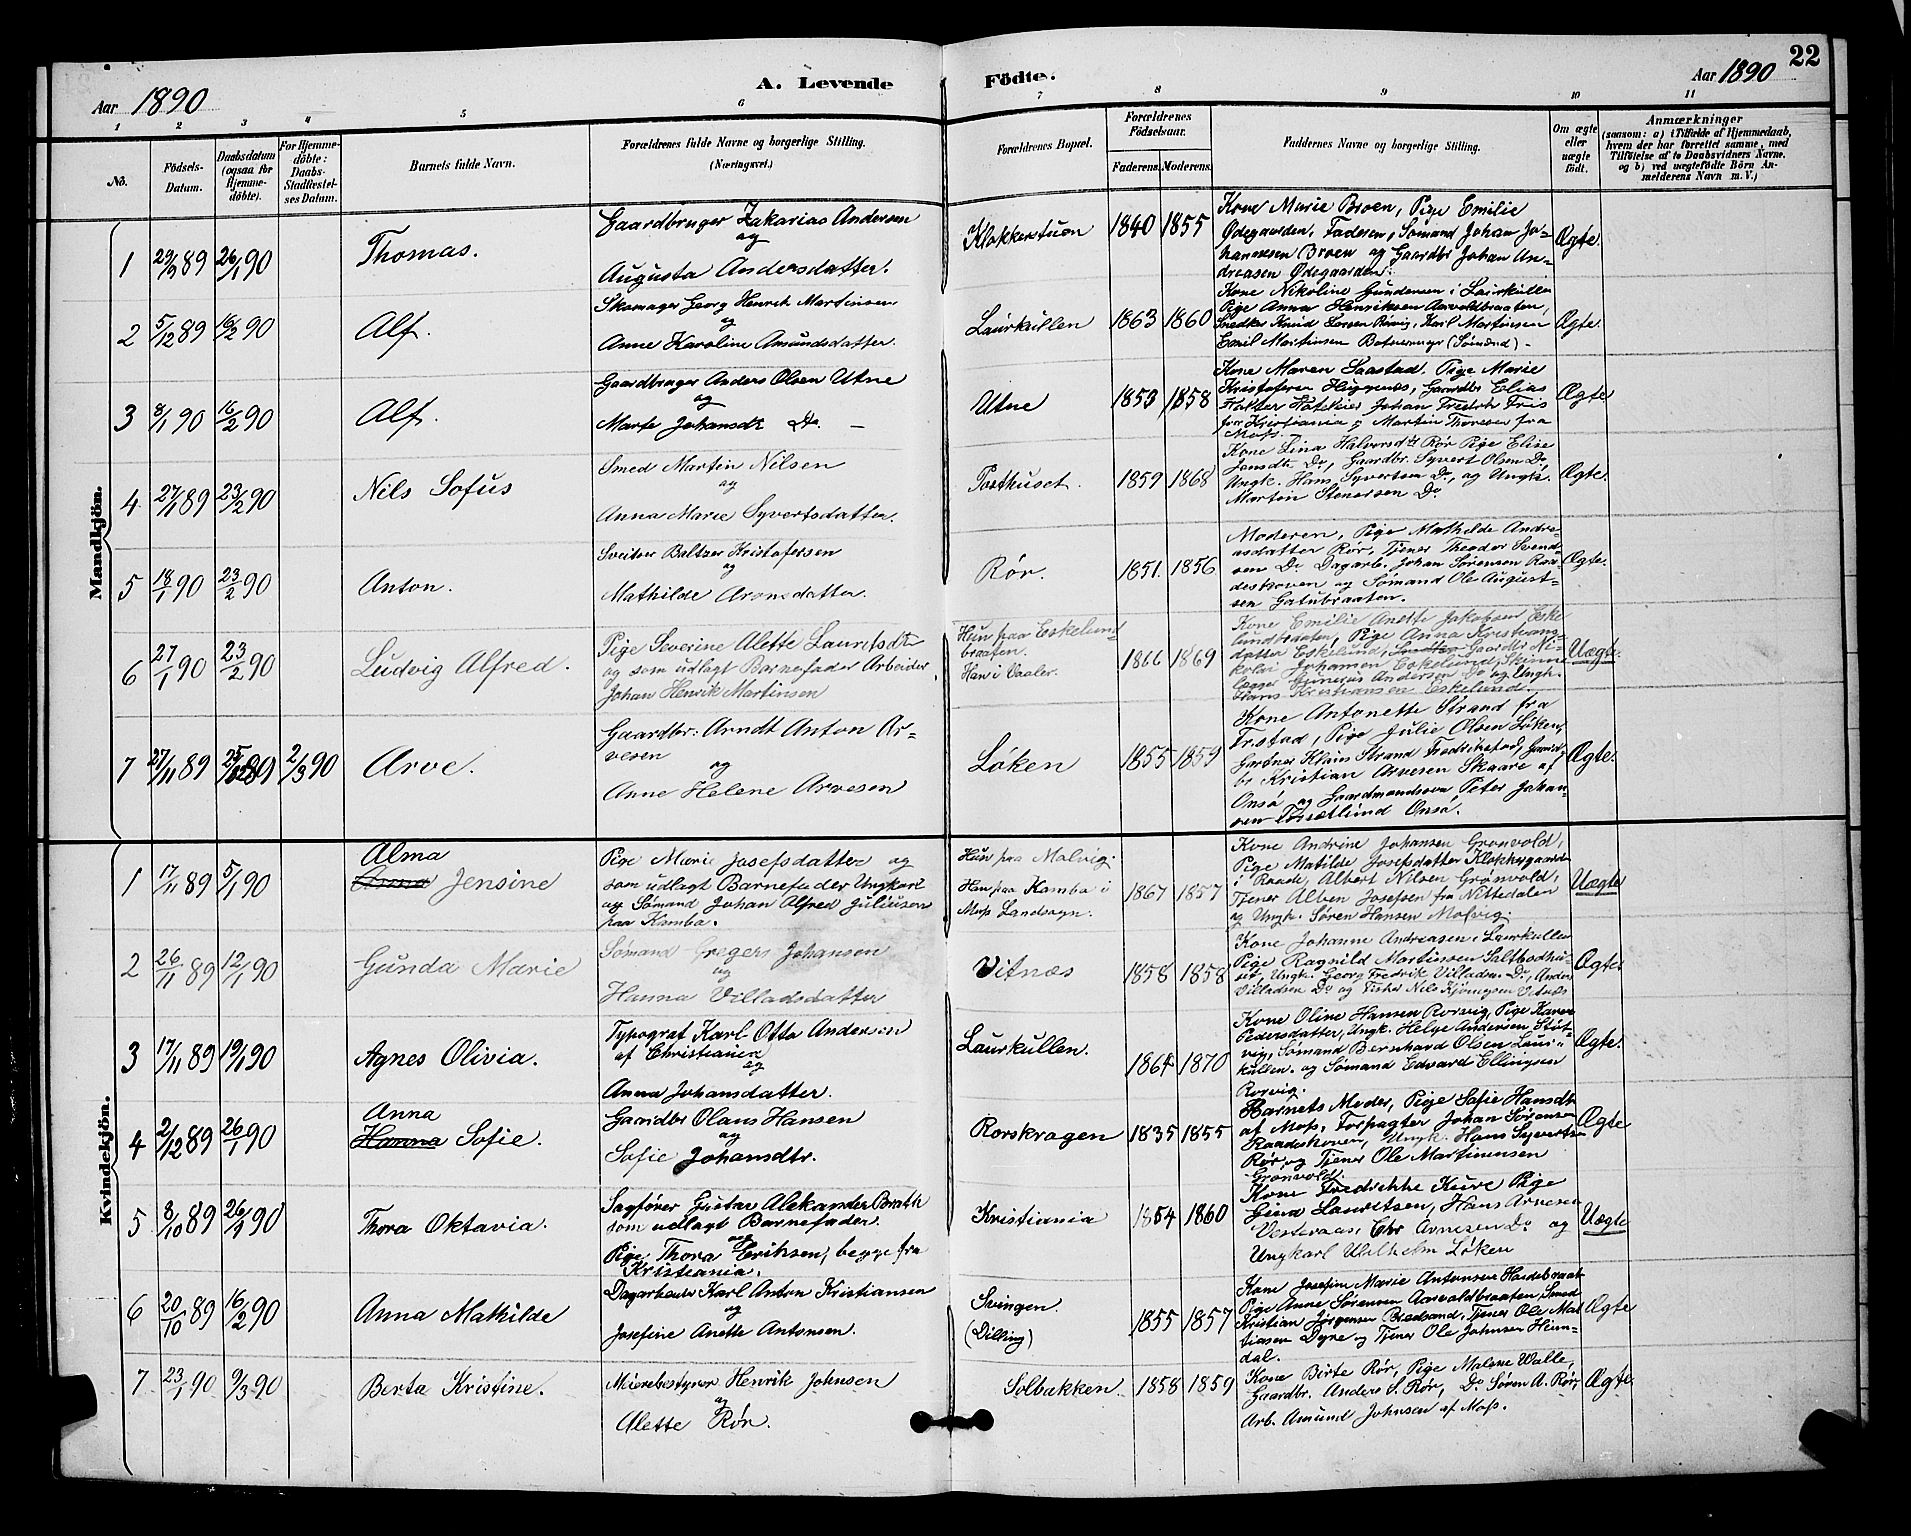 22
Aar 1890
A. Levende
Födte.
Aar 1890
1 2 3 4 5 6 7 8 9 10 11
No.
Födsels-
Datum.
Daabsdatum
(ogsaa for
Hjemme-
döbte).
For Hjemme-
döbte:
Daabs-
Stadfæstel-
ses Datum.
Barnets fulde Navn.
Forældrenes fulde Navne og borgerlige Stilling.
(Næringsvei.)
Forældrenes Bopæl.
Forældrenes
Födselsaar.
Faderens. Moderens.
Faddernes Navne og borgerlige Stilling.
Om ægte
eller
uægte
født.
Anmærkninger
(saasom: a) i Tilfælde af Hjemmedaab,
hvem der har forrettet samme, med
Tilföielse af to Daabsvidners Navne,
og b) ved uægtefödte Börn An-
melderens Navn m. V.)
Mandkjön.
1 29/9 89 26/1 90 Thomas.
Gaardbruger Zakarias Andersen
og
Augusta Andersdatter.
Klokkertuen 1840 1855
Kone Marie Broen, Pige Emilie
Ødegaarden, Faderen, Sømand Johan Jo-
hannesen Broen og Gaardbr Johan An-
dreasen Ødegaarden.
Ægte.
2 5/12 89 16/2 90 Alf.
Skomager Georg Henrik Martinsen
og
Anne Karoline Amundsdatter.
Laurkullen 1863 1860
Kone Nikoline Gundersen i Laurkullen
Pige Anna Henriksen Aarvoldbraaten,
Snedker Knud Larsen Rørvig, Karl Martinsen
Emil Martinsen (Sømænd) -
Ægte.
3 8/1 90 16/2 90 Alf.
Gaardbruger Anders Olsen Utne
og
Marte Johansdt. Do. —
Utne 1853 1858
Kone Maren Saastad, Pige Marie
Kristofersen Huggenæs, Gaardbr Elias
Johan Fredrik Friis
fra Kristiania og Martin Thoresen fra
Moss.
Ægte
4 27/11 89 23/2 90 Nils Sofus
Smed Martin Nilsen
og
Anna Marie Syvertsdatter.
Posthuset. 1859 1868
Kone Lina Halvorsdt Rør Pige Elise
Jensdt. Do, Gaardbr. Syvert Olsen Do,
Ungk. Hans Syvertsen Do, og Ungk.
Martin Stenersen Do
Ægte.
5 18/1 90 23/2 90 Anton.
Sveitser Baltzer Kristofersen
og
Mathilde Aronsdatter.
Rør. 1851. 1856
Moderen, Pige Mathilde Andre-
asdatter Rør, Tjener Theodor Svend-
sen Do Dagarb. Johan Sørensen Raa-
deskoven og Sømand Ole August-
sen Gatubraaten.
Ægte.
6 27/1 90 23/2 90 Ludvig Alfred.
Pige Severine Alette Lauritsdt.
og som udlagt Barnefader Arbeider
Johan Henrik Martinsen
Hun paa Eskelund
braaten.
Han i Vaaler.
1866 1869
Kone Emilie Anette Jakobsen Eske
lundbraaten, Pige Anna Kristians-
datter Eskelund, Gaardbr Ni-
kolai Johansen Eskelund,
Gunerius Andersen Do og Ungk.
Hans Kristiansen Eskelund.
Uægte.
7 27/11 89 25/12 89 2/3 90 Arve.
Gaardbr: Arndt Anton Ar-
vesen
og
Anne Helene Arvesen
Løken 1855 1859
Kone Antonette Strand fra
Fr.stad, Pige Julie Olsen Løken,
Gartner Klaus Strand Fredrikstad, Gaard-
br Kristian Arvesen Skaare af
Onsø og Gaardmandssøn Peter Johan-
sen Onsø.
Ægte.
Kvindekjön.
1 17/11 89 5/1 90 Alma
Anna Jensine
Pige Marie Josefsdatter og
som udlagt Barnefader Ungkarl
og Sømand Johan Alfred Juliusen
paa Kamba.
Hun paa Malvig.
Han paa Kamba i
Moss Landsogn.
1867 1857
Kone Andrine Johansen Grønvold,
Pige Matilde Josefsdatter Klokkegaarden
i Raade, Albert Nilsen Grønvold,
Tjener Alben Josefsen fra Nittedalen
og Ungk. Søren Hansen Molvig.
Uægte
2 26/11 89 12/1 90 Gunda Marie
Sømand Gregers Johansen
og
Hanna Villadsdatter
Vitnæs 1858 1858
Kone Johanne Andreasen i Laurkullen
Pige Ragnild Martinsen Saltbodhu-
set, Ungk. Georg Fredrik Villadsen Do, Anders
Villadsen Do og Fisker Nils Vitnæs
Ægte
3 17/11 89 19/1 90 Agnes Olivia.
Typograf Karl Otto Andersen
af Christiania
og
Anna Johansdatter.
Laurkullen. 1864 1870
Kone Oline Hansen Rørvig, Pige Karen
Pedersdatter, Ungk. Helge Andersen Støt-
vig, Sømand Bernhard Olsen Laur-
kullen. og Sømand Edvard Ellingsen
Rørvig.
Ægte.
4 2/12 89 26/1 90 Anna
Hanna Sofie.
Gaardbr Olaus Hansen
og
Sofie Johansdtr.
Rørskragen 1835 1855
Barnets Moder, Pige Sofie Hansdt.
af Moss, Forpagter Johan Sørensen
Raadeskoven, Ungk. Hans Syvertsen
Rør, og Tjener Ole Martinsen
Grønvold
Ægte
5 8/10 89 26/1 90 Thora Oktavia.
Sagfører Gustav Aleksander Brath
som udlagt Barnefader.
og
Pige Thora Eriksen, begge fra
Kristiania.
Kristiania 1854 1860
Kone Fredrikke Kure Pige
Gina Lauritsen, Hans Arnesen
Vesteraas, Chr Arnesen Do og
Ungkarl Vilhelm Løken
Uægte
6 20/10 89 16/2 90 Anna Mathilde
Dagarbeider Karl Anton Kristiansen
og
Josefine Anette Antonsen.
Svingen.
(Dilling)
1855 1857
Kone Josefine Marie Antonsen
Pige Anne Sørensen Aarvoldbraaten, Smed
Kristian Jørgensen Bredsand, Tjener Ole Mat
tiasen Dyre og Tjener Ole Johnsen Heim-
dal.
Ægte
7 23/1 90 9/3 90 Berta Kristine.
Meieribestyrer Henrik Johnsen
og
Alette Rør.
Solbakken 1858 1859
Kone Birte Rør, Pige Malene Walle,
Gaardbr. Anders S. Rør, Do Søren A. Rør,
Arb. Amund Johnsen af Moss.
Ægte